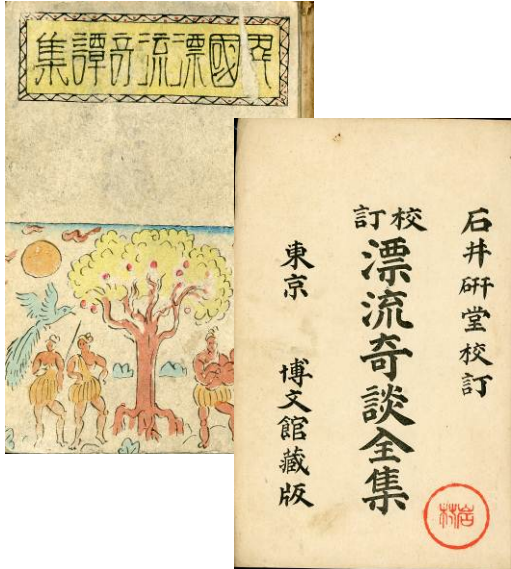 異國漂流奇譚集
石井研堂校訂
校訂
漂流奇談全集
東京 博文館藏版